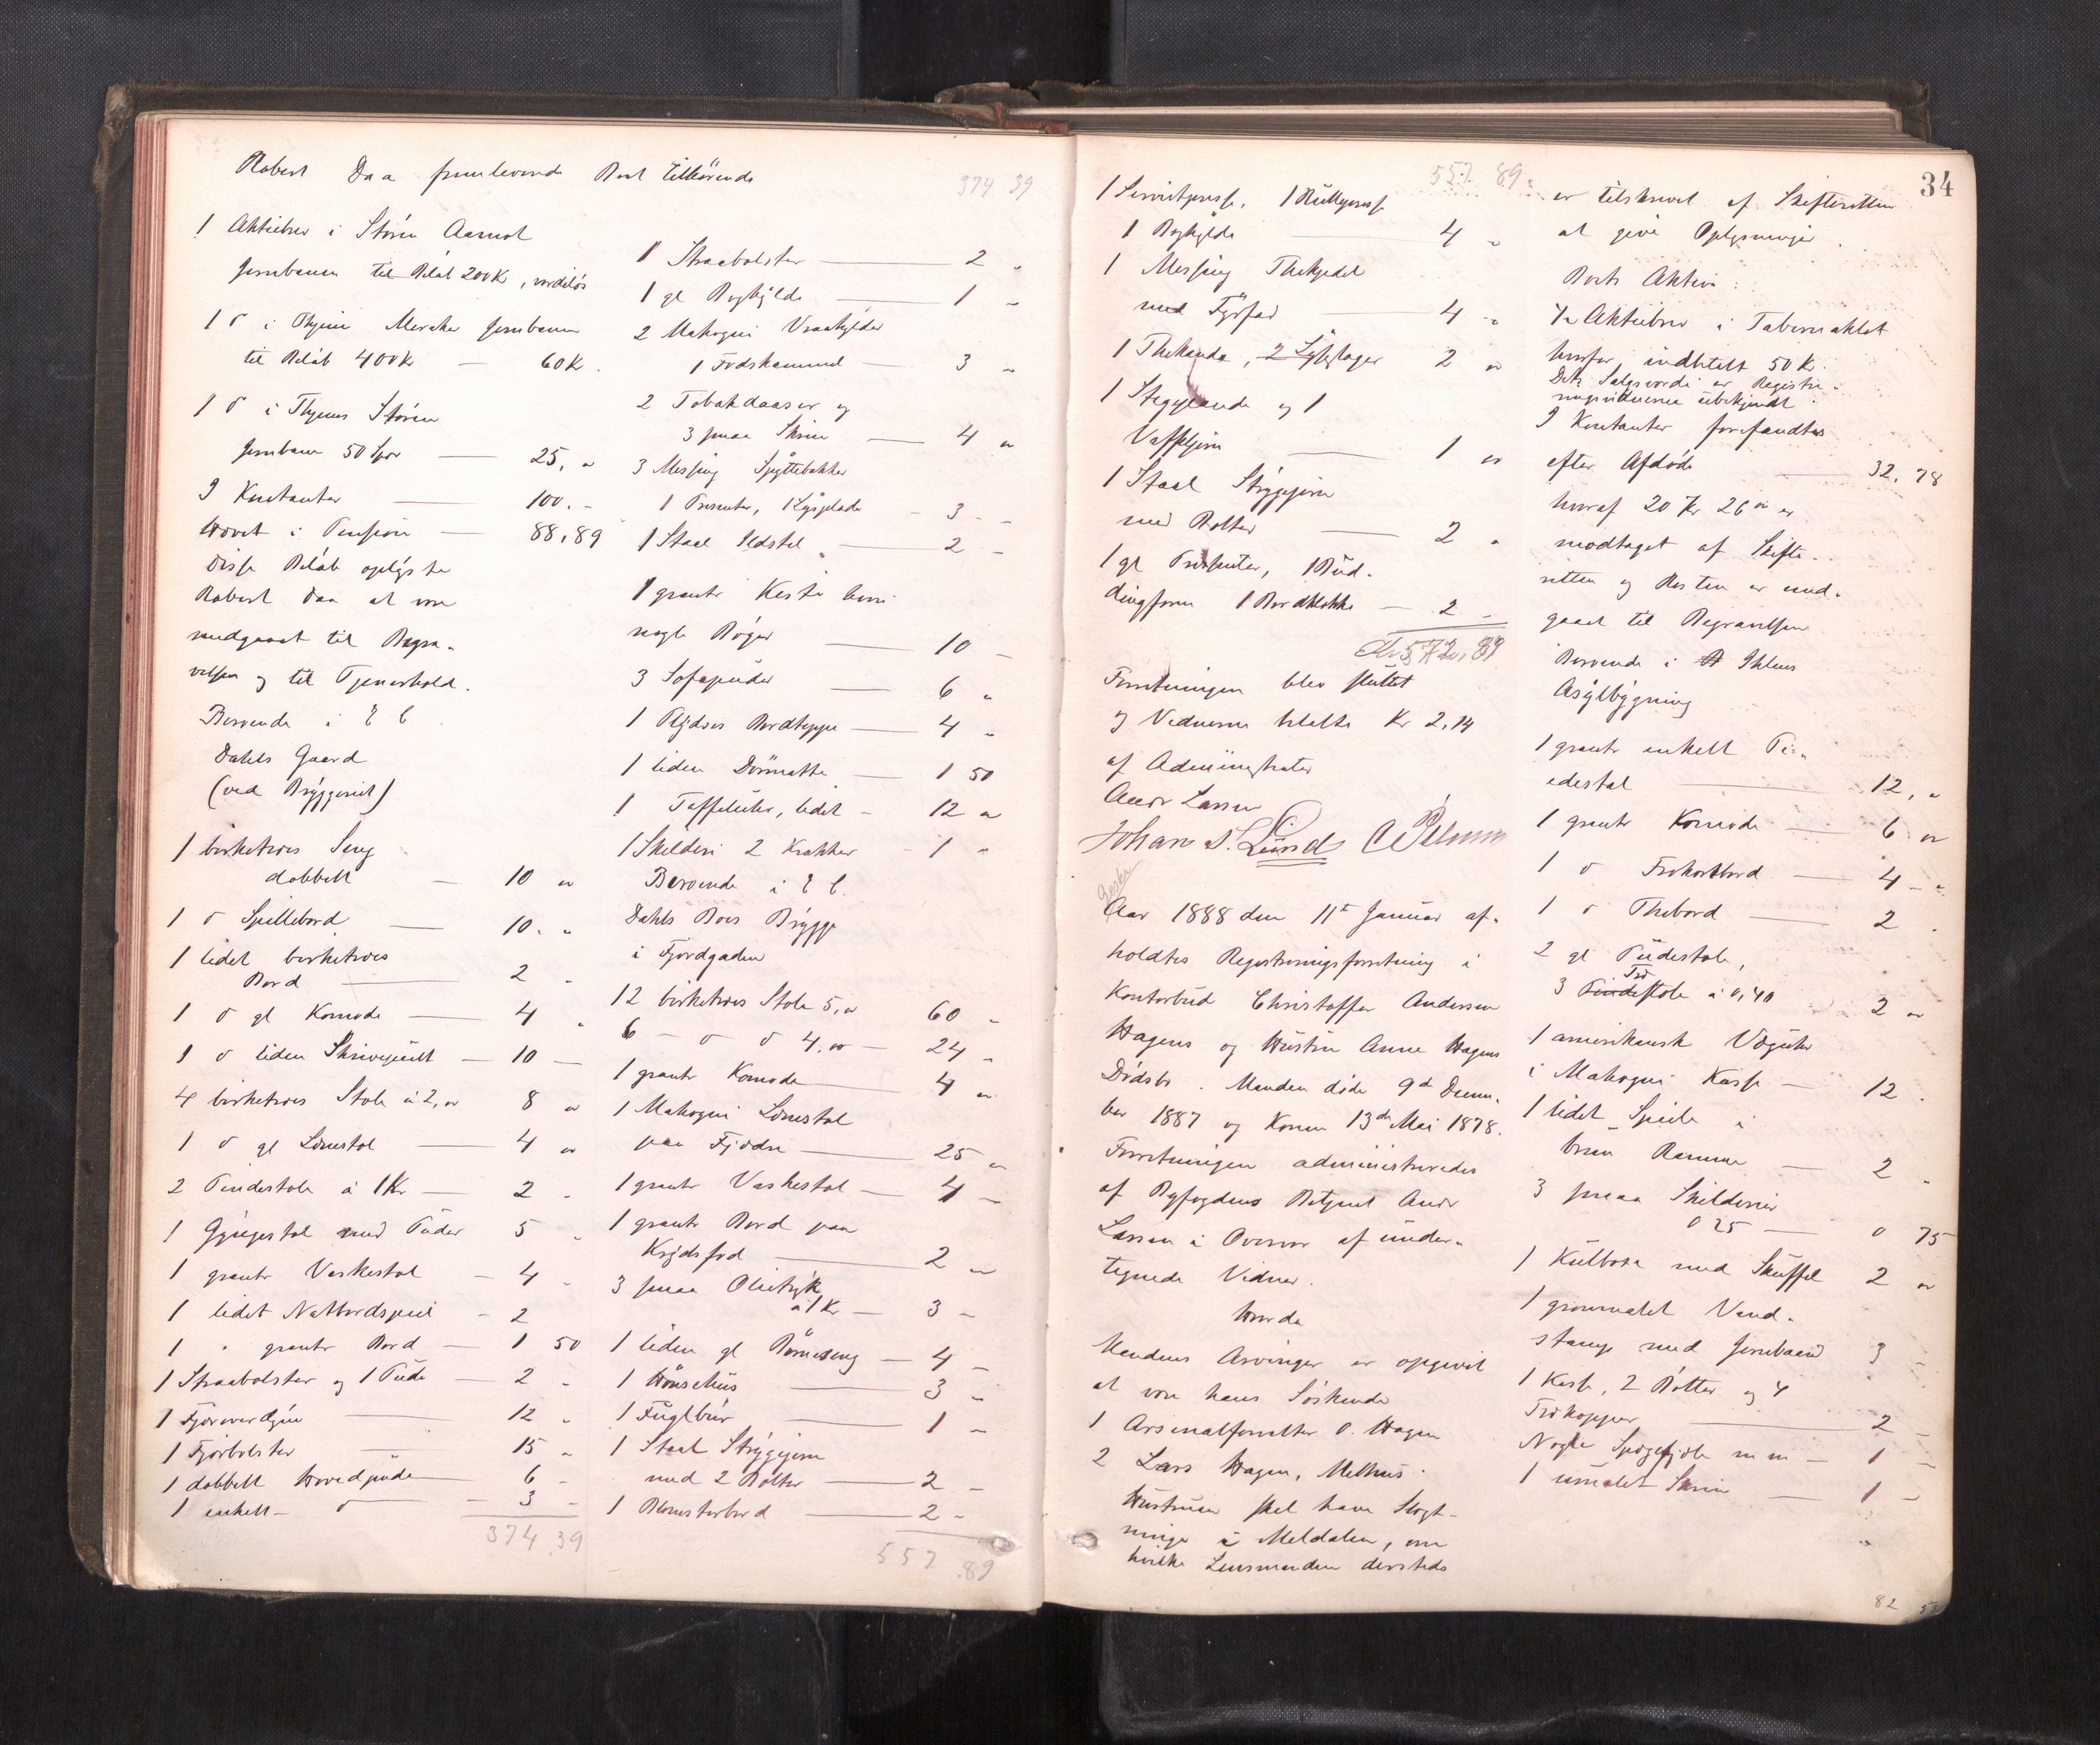 Robert Daa fremlevende Boet tilhörende
1 Aktiebrev i Stören Aamot
Jernbanen til Belöb 200 Kr, værdilös
1 d i Meraker Jernbanen
til Belöb 400 Kr — 60 Kr.
1 d i Stören
Jernbane 50 Spd — 25, "
I Kontanter — 100. -
Hævet i Pension — 88,89
Disse Belöb oplyste
Robert Daa at være
medgaaet til Begra-
velsen og til Tjenerhold.
Beroende i E C
Dahls Gaard
(ved Bryggeriet)
1 birketræes Seng
dobbelt — 10 "
1 d Spillebord — 10. "
1 lidet birketræes
Bord — 2 "
1 d gl Komode — 4 "
1 d liden Skrivepult — 10 —
4 birketræes Stole à 2, " 8 "
1 d gl Lænestol — 4 "
2 Pindestole à 1 Kr — 2 -
1 Gyngestol med Puder 5 "
1 grantr Vaskestol — 4 -
1 lidet Natbordspeil - 2
1 " grantr Bord — 1 50
1 Straabolster og 1 Pude — 2 -
1 Fjæroverdyne — 12 "
1 Fjærbolster — 15 "
1 dobbelt Hovedpude — 6 -
1 enkelt - d — 3 -
374.39
374 39
1 Straabolster — 2 "
1 gl Boghylde — 1 "
2 Mahogni Vraahylder
1 Fodskammel — 3 "
2 Tobakdaaser og
3 smaa Skrin — 4 "
3 Messing Spyttebakker
1 Presenter, 1 Lyseplade - 3 - -
1 Staal Ildstel — 2 -
1 grantr Kiste
nogle Böger — 10 -
3 Sofapuder — 6 "
1 Bordteppe — 4 "
1 liden Dörmatte — 1 50
1 Taffeluhr, lidet - 12 "
1 Skilderi 2 Krakker - 1 "
Beroende i E C.
Dahls Boes Brygge
i Fjordgaden
12 birketræes Stole 5, " 60 -
6 - d d 4. " — 24 -
1 grantr Komode — 4 "
1 Mahogni Lænestol
paa Fjædre — 25 "
1 grantr Vaskestol — 4 —
1 grantr Bord paa
Krydsfod — 2 "
3 smaa Olietryk
à 1 Kr — 3 -
1 liden gl Börneseng — 4 -
1 Hönsehus — 3 -
1 Fuglbur — 1 -
1 Staal Strygejern
med 2 Bolter — 2 -
1 Blomsterbord — 2 -
557.89
34
557. 89
1 Servietpresse, 1 Rullepresse
1 Boghylde — 4 "
1 Messing Thekjedel
med Fyrfad — 4 "
1 Thekande, 2 Lysestager 2 "
1 Stegepande og 1
Vaffeljern — 1 "
1 Staal Strygejern
med Bolter — 2 "
1 gl Presenter, 1 Bud-
dingform 1 Bordklokke — 2 -
Kr 572, 89
Forretningen blev sluttet
og Vidnerne betalte Kr 2,14
af Administrator
Andr Larsen
Johan S. Lund
Aar 1888 den 11te Januar af-
holdtes Registreringsforretning i
Kontorbud Christoffer Andersen
Hagens og Hustru Anne Hagens
Dödsbo. Manden döde 9de Decem-
ber 1887 og Konen 13de Mai 1878.
Forretningen administreredes
af Byfogdens Betjent Andr
Larsen i Overvær af under-
tegnede Vidner.
Hvorda
Mandens Arvinger er opgivet
at være hans Söskende
1 Arsenalforvalter O. Hagen
2 Lars Hagen, Melhus.
Hustruen skal have Slægt-
ninge i Meldalen, om
hvilke Lensmanden dersteds
er tilskrevet af Skifteretten
at give Oplysninger.
Boets Aktiva:
Aktiebrev i Tabernaklet
hvorfor indbetalt 50 Kr.
Dets Salgsværdi er Registre-
ringsvidnerne ubekjendt.
I Kontanter forefandtes
efter Afdöde — 32, 78
hvoraf 20 Kr 26 öre er
modtaget af Skifte-
retten og Resten er med-
gaaet til Begravelsen
Beroende i Ihlens
Asylbygning
1 grantr enkelt Pi-
edestal — 12, "
1 grantr Komode — 6 "
1 d Frokostbord — 4 - "
1 d Thebord — 2 -
2 gl Pudestole,
Træ
3 Pindestole à 0,40 2 "
1 amerikansk Væguhr
i Mahogni Kasse — 12 -
1 lidet Speile i
brun Ramme — 2 -
3 smaa Skilderier
0 25 — 0 75
1 Kulbox med Skuffel 2 "
1 grönmalet Vand-
stamp med Jernbaand 3 -
1 Kasse, 2 Bötter og 4
Trækopper — 2 -
Nogle Spegefjæle m m — 1 -
1 umalet Skrin — 1 -
82 53